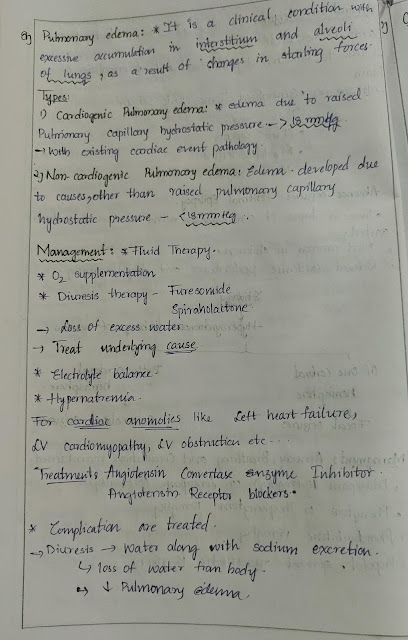 8) Pulmonary edema: * It is a clinical condition with
excessive accumulation in interstitium and alveoli
of lungs, as a result of changes in starling forces.
Types:
1) Cardiogenic Pulmonary edema: * edema due to raised
Pulmonary capillary hydrostatic pressure -> 18 mmHg
→ With existing cardiac event pathology.
2) Non-cardiogenic Pulmonary edema: Edema - developed due
to causes, other than raised pulmonary capillary
hydrostatic pressure - <18mmHg.
Management: * Fluid Therapy.
* O2 supplementation
* Diuresis therapy - Furesomide
Spiraholaltone
→ Loss of excess water
→ Treat underlying cause
* Electrolyte balance.
* Hypernatremia.
For cardiac anomolies like Left heart failure,
LV cardiomyopathy, LV obstruction etc...
Treatments Angiotensin Convertase enzyme Inhibitor.
Angiotensin Receptor blockers.
* Complication are treated.
→ Diuresis → Water along with sodium excretion.
↳ loss of water from body.
↳ ↓ Pulmonary edema.